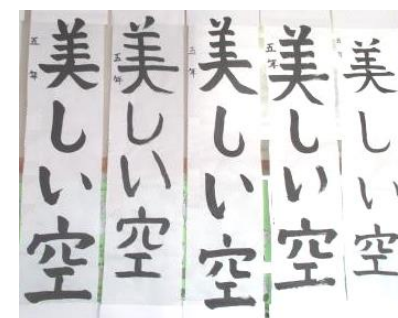 美しい空
五年
美しい空
五年
美しい空
五年
美しい空
五年
美しい空